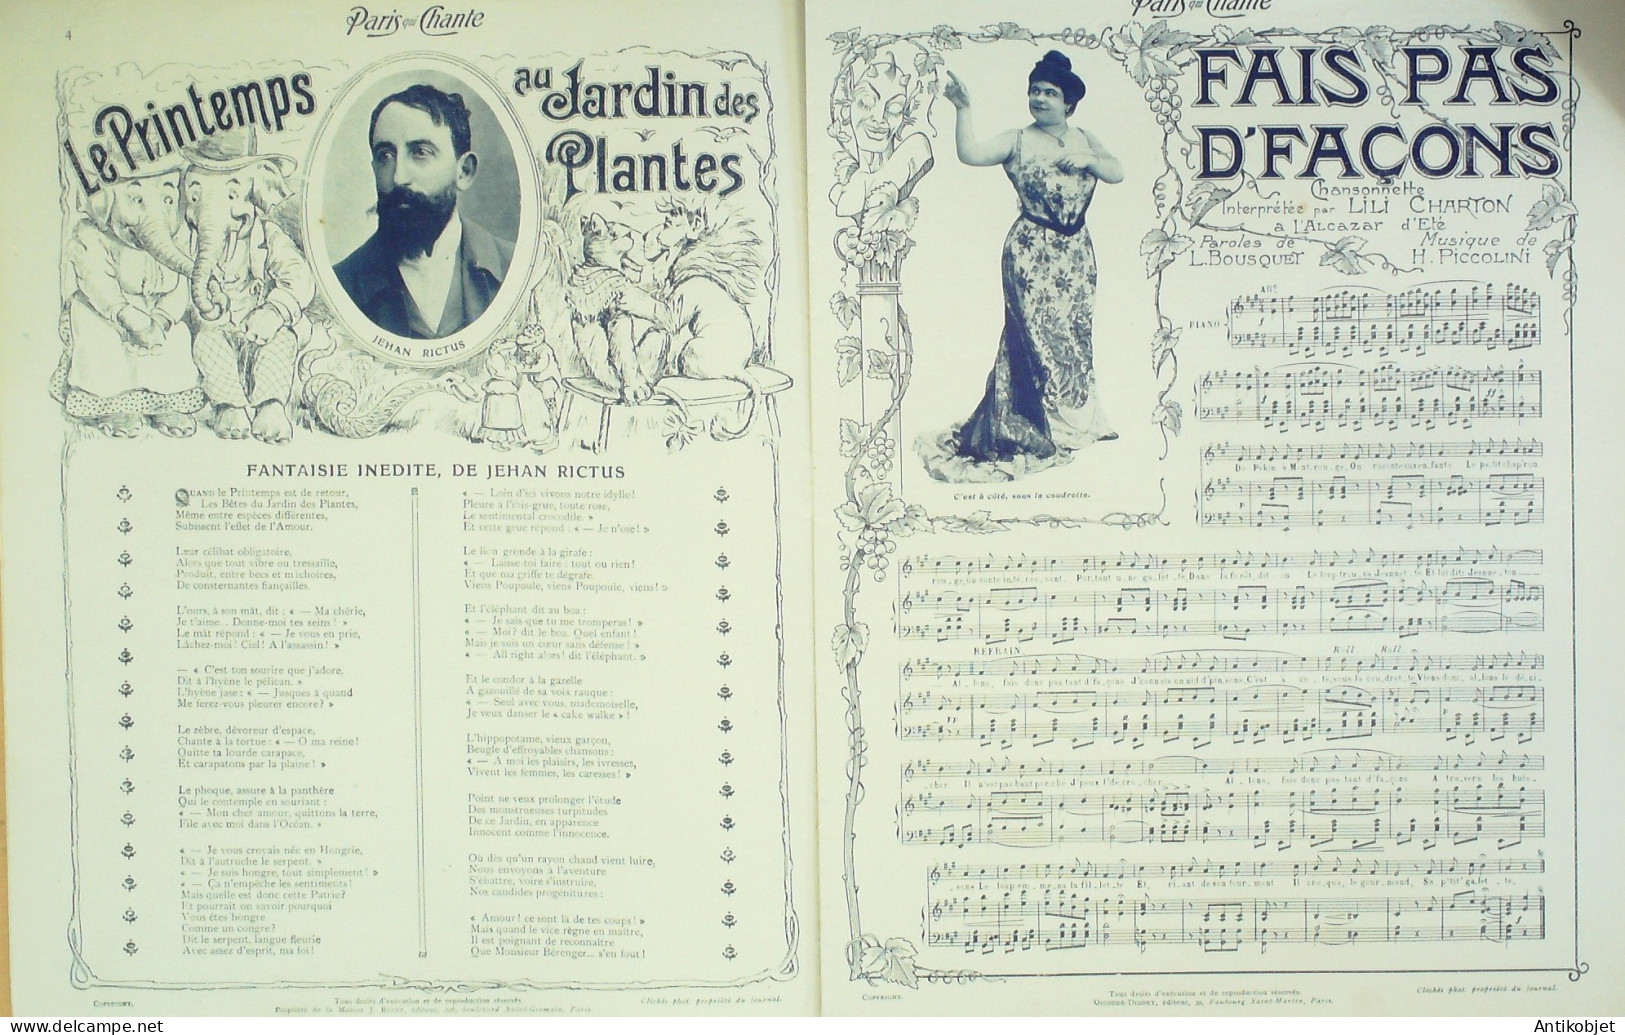 4
Paris qui Chante
Le Printemps
au Jardin des
Plantes
JEHAN RICTUS
FANTAISIE INEDITE, DE JEHAN RICTUS
QUAND le Printemps est de retour,
Les Bêtes du Jardin des Plantes,
Même entre espèces différentes,
Subissent l'effet de l'Amour.
Leur célibat obligatoire,
Alors que tout vibre ou tressaille,
Produit, entre becs et mâchoires,
De consternantes fiançailles.
L'ours, à son mât, dit : « — Ma chérie,
Je t'aime.. Donne-moi tes seins ! »
Le mât répond : « — Je vous en prie,
Lâchez-moi ! Ciel ! A l'assassin ! »
— « C'est ton sourire que j'adore,
Dit à l'hyène le pélican. »
L'hyène jase : « — Jusques à quand
Me ferez-vous pleurer encore? »
Le zèbre, dévoreur d'espace,
Chante à la tortue : « — O ma reine !
Quitte ta lourde carapace,
Et carapatons par la plaine ! »
Le phoque, assure à la panthère
Qui le contemple en souriant :
« — Mon cher amour, quittons la terre,
File avec moi dans l'Océan. »
« — Je vous croyais née en Hongrie,
Dit à l'autruche le serpent. »
« — Je suis hongre, tout simplement ! »
« — Ça n'empêche les sentiments !
Mais quelle est donc cette Patrie?
Et pourrait on savoir pourquoi
Vous êtes hongre
Comme un congre?
Dit le serpent, langue fleurie
Avec assez d'esprit, ma foi !
« — Loin d'ici vivons notre idylle !
Pleure à l'ibis-grue, toute rose,
Le sentimental crocodile. »
Et cette grue répond : « — Je n'ose ! »
Le lion gronde à la girafe :
« — Laisse-toi faire : tout ou rien !
Et que ma griffe te dégrafe.
Viens Poupoule, viens Poupoule, viens ! »
Et l'éléphant dit au boa :
« — Je sais que tu me tromperas ! »
« — Moi ? dit le boa. Quel enfant !
Mais je suis un cœur sans défense ! »
« — All right alors ! dit l'éléphant. »
Et le condor à la gazelle
A gazouillé de sa voix rauque :
« — Seul avec vous, mademoiselle,
Je veux danser le « cake walke » !
L'hippopotame, vieux garçon,
Beugle d'effroyables chansons :
« — A moi les plaisirs, les ivresses,
Vivent les femmes, les caresses ! »
Point ne veux prolonger l'étude
Des monstrueuses turpitudes
De ce Jardin, en apparence
Innocent comme l'innocence.
Où dès qu'un rayon chaud vient luire,
Nous envoyons à l'aventure
S'ébattre, voire s'instruire,
Nos candides progénitures :
« Amour ! ce sont là de tes coups ! »
Mais quand le vice règne en maître,
Il est poignant de reconnaître
Que Monsieur Bérenger... s'en fout !
COPYRIGHT.
Tous droits d'exécution et de reproduction réservés.
Clichés phot. propriété du journal.
Propriété de la Maison J. éditeur, boulevard Saint-Germain, Paris.
Paris qui Chante
FAIS PAS
D'FAÇONS
Chansonnette
Interprétée par LILI CHARTON
à L'ALCAZAR d'Eté
Paroles de
L. BOUSQUET
Musique de
H. PICCOLINI
C'est à côté, sous la coudrette.
PIANO
De Pékin à Mont.rou.ge, On raconte aux en.fants Le pe.tit chap'ron
rou.ge, un conte in.té.res.sant. Por.tant u.ne ga.let.te, Dans la forêt, dit.on Le loup trou.va Jeannet.te Et lui dit: Jeanne.ton
REFRAIN
Rall. Roll.
Al.lons, fais donc pas tant d'fa.çons J'connais un nid d'pin.sons, C'est à cô.té, sous la cou.dret.te Viens donc, al.lons le dé.ni.
.cher Il n'est pas haut perché J'pour.l'dé.cro.cher Al.lons, fais donc pas tant d'fa.çons A tra.vers les buis.
.sons Le loup em.me.na la fil.let.te Et, ri.ant de son tour.ment Il cro.qua, le gour.mand, Sa p'tit' ga.let.te.
COPYRIGHT.
Tous droits d'exécution et de reproduction réservés.
Clichés phot. propriété du journal.
éditeur, Faubourg Saint-Martin, Paris.
Antikobjet